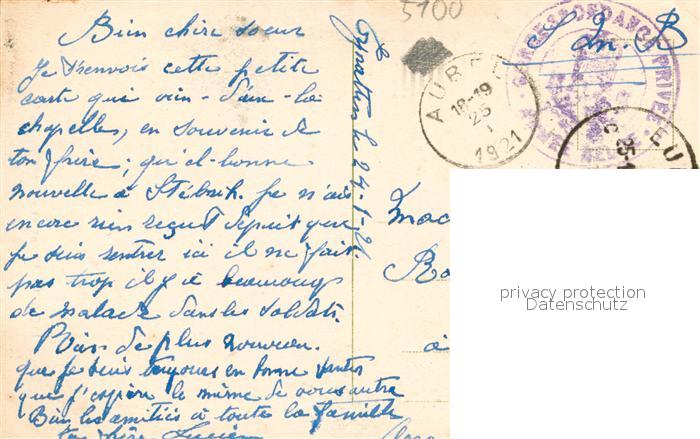 5100
Bien chère soeur
Je t'renvois cette petite
carte qui vien - d'aix-la
chapelles, en souvenir de
ton frère; qu'el-bonne
nouvelle à Stébnik. Je n'ais
encore rien reçut depuit que
je suis rentrer ici il ne fait
pas trop il y à beaucoup
de malade dans les soldats.
Rien de plus nouveau.
que je suis toujours en bonne santer
que j'espère le même de vous autre
Bien les amitiés à toute la famille
ton frère Lucien
le 24-1-21.
S. M. B
CORRESPONDANCE PRIVEE
AUBEL
18-19
25
I
1921
EU
25-1
Mad
à
privacy protection
Datenschutz